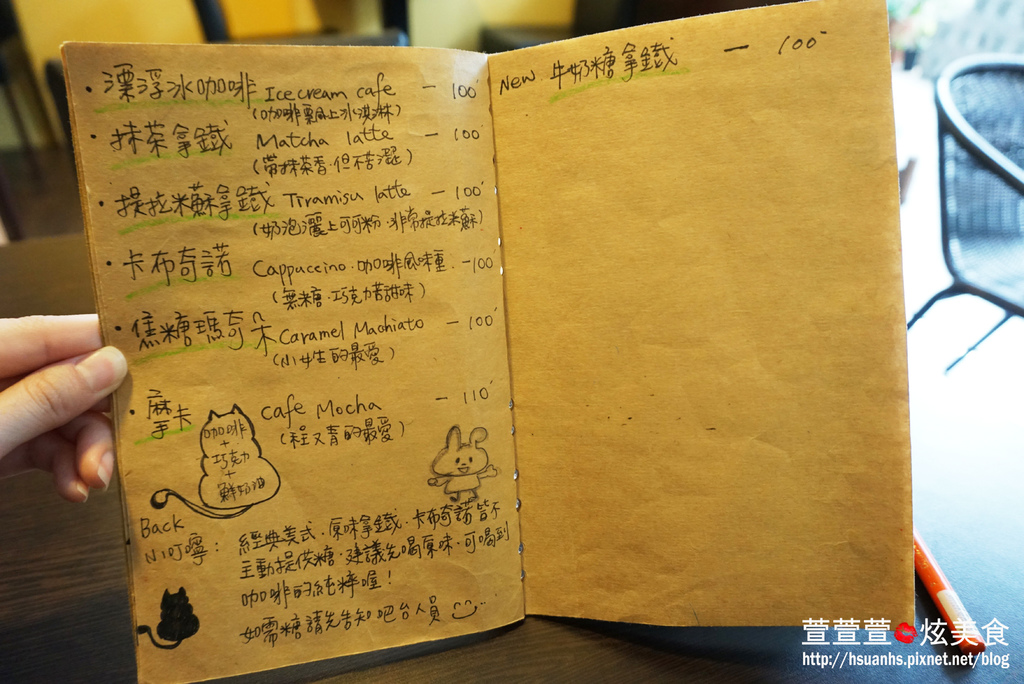 · 漂浮冰咖啡 Icecream cafe — 100
(咖啡飄上冰淇淋)
· 抹茶拿鐵 Matcha latte — 100
(帶抹茶香·但不苦澀)
· 提拉米蘇拿鐵 Tiramisu latte — 100
(奶泡灑上可可粉·非常提拉米蘇)
· 卡布奇諾 Cappuccino·咖啡風味重 — 100
(無糖·巧克力苦甜味)
· 焦糖瑪奇朵 Caramel Machiato — 100
(小女生的最愛)
· 摩卡 Cafe Mocha — 110
(程又青的最愛)
咖啡
+
巧克力
+
鮮奶油
Back
小叮嚀：經典美式·原味拿鐵·卡布奇諾皆不
主動提供糖·建議先喝原味·可喝到
咖啡的純粹喔！
如需糖請先告知吧台人員
New 牛奶糖拿鐵 — 100
萱萱萱 炫美食
http://hsuanhs.pixnet.net/blog